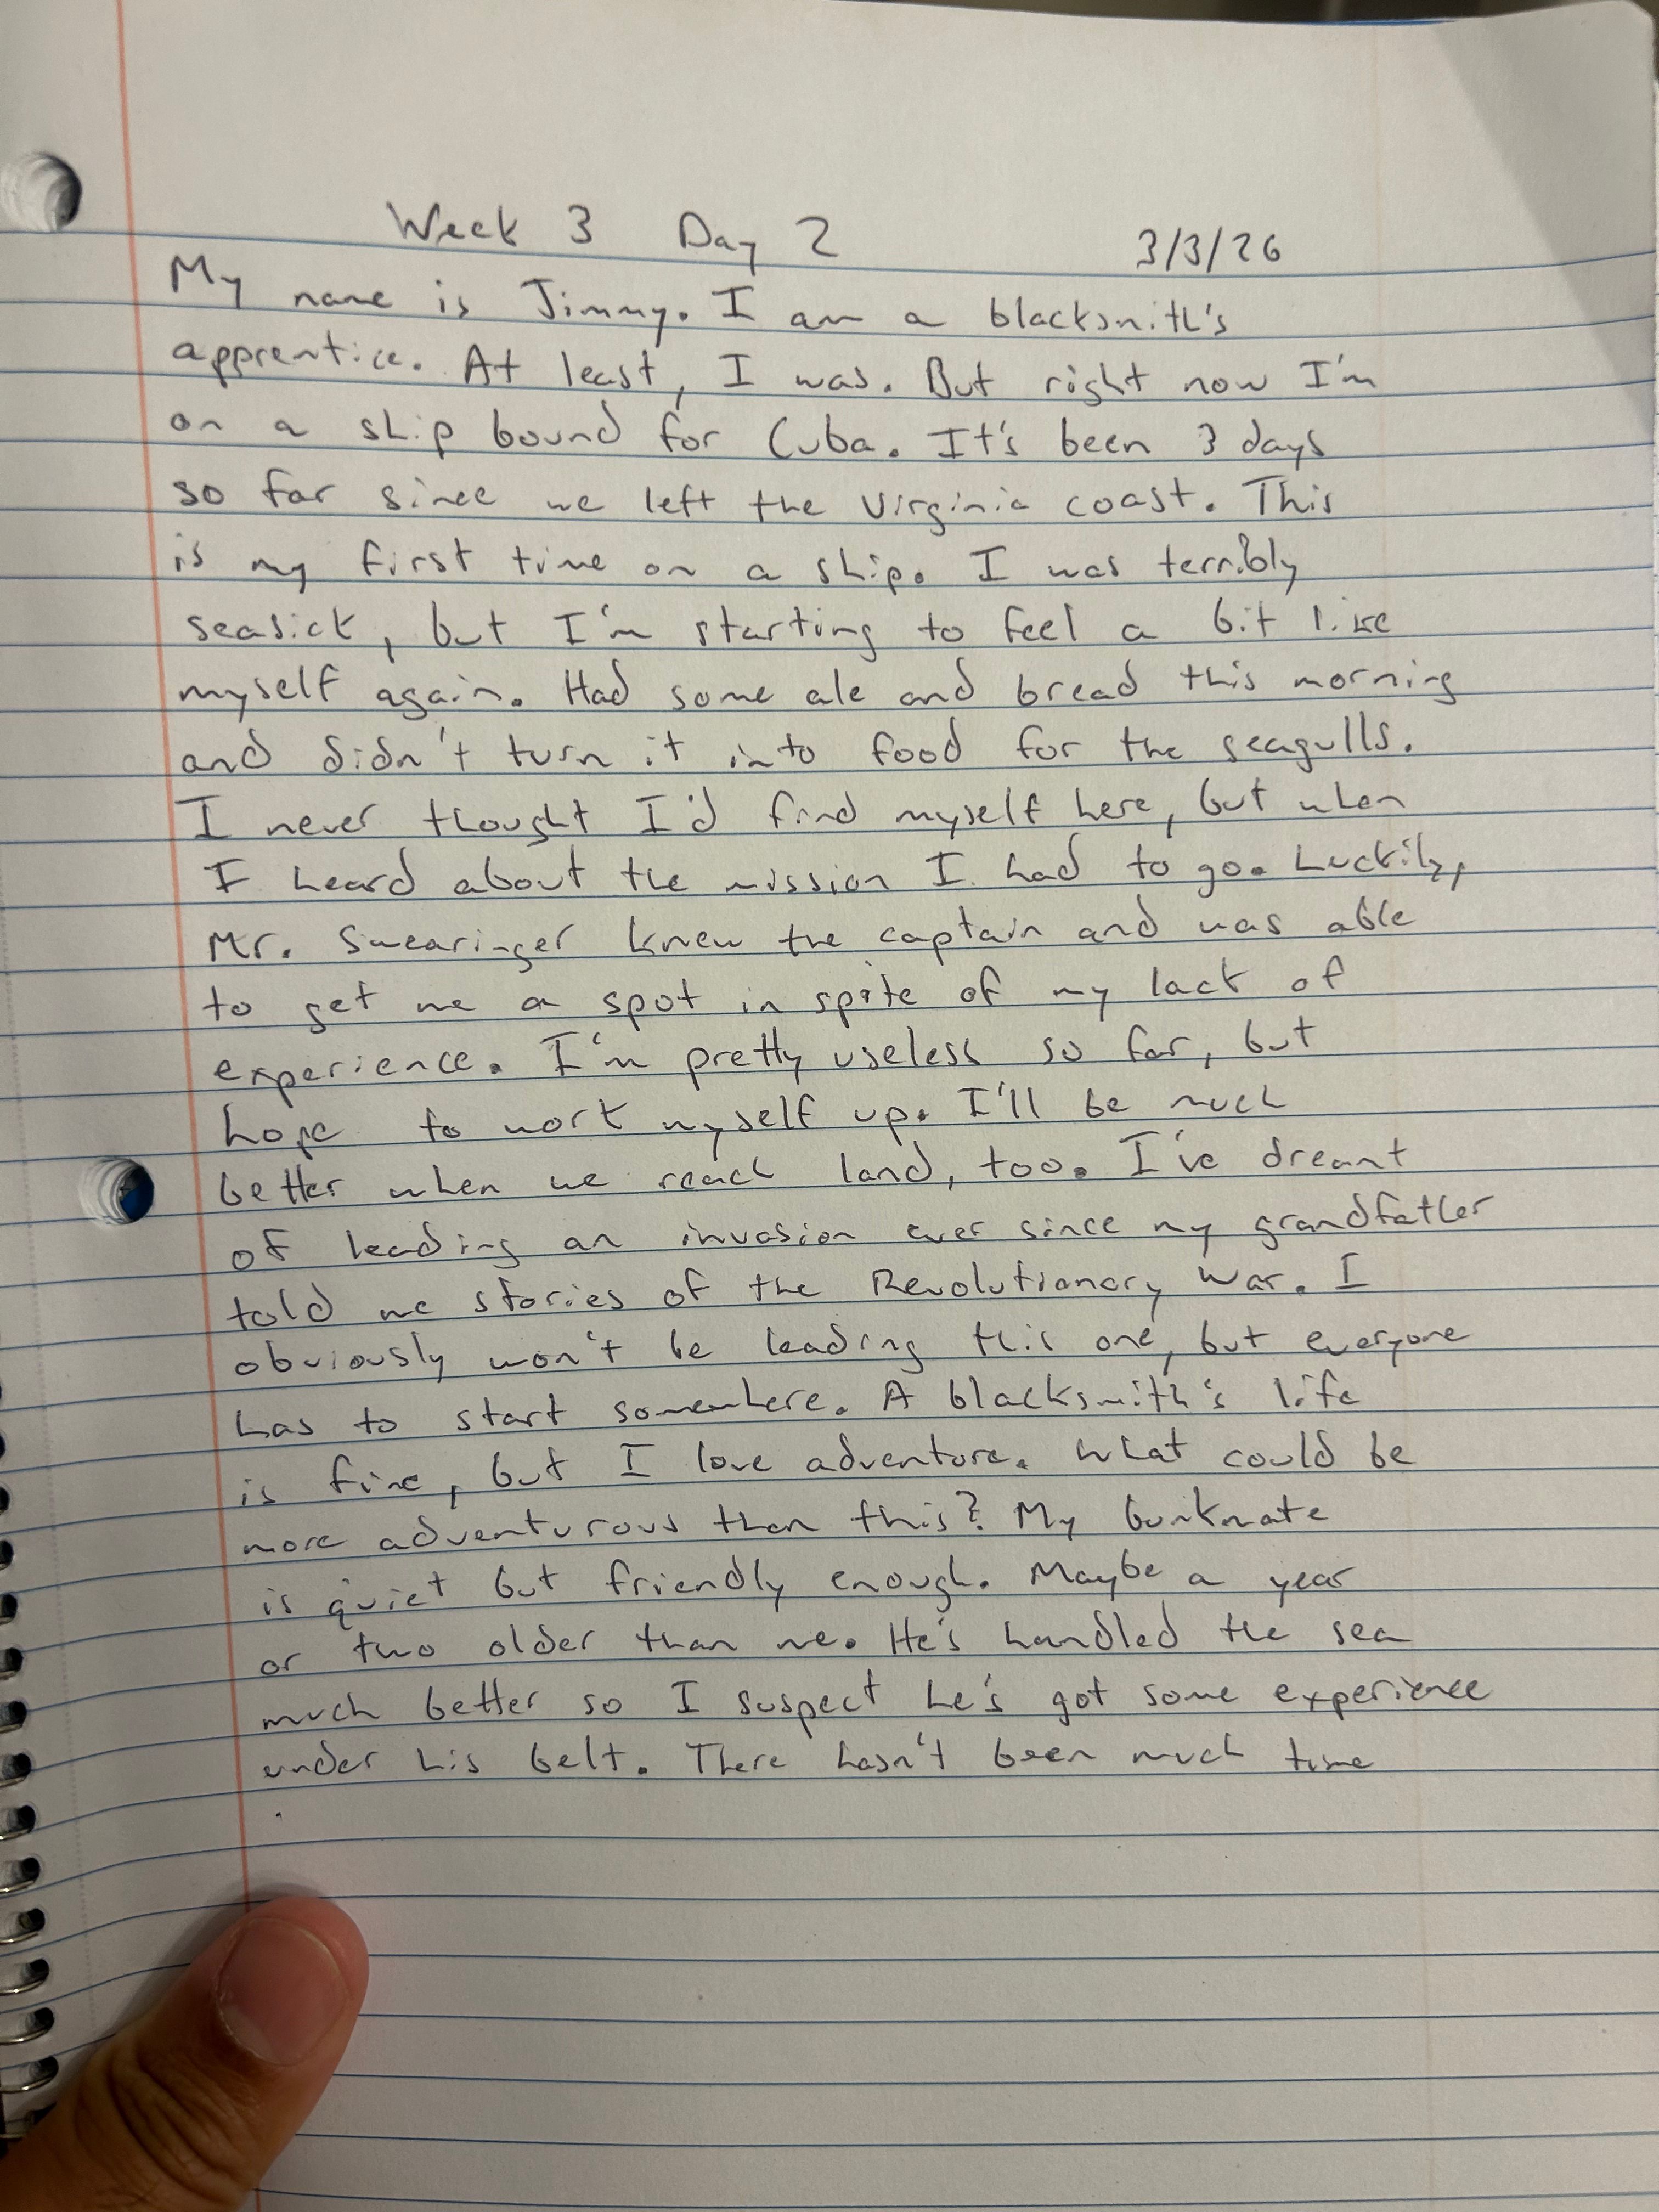 Week 3 Day 2 3/3/26
My name is Jimmy. I am a blacksmith's
apprentice. At least, I was. But right now I'm
on a ship bound for Cuba. It's been 3 days
so far since we left the Virginia coast. This
is my first time on a ship. I was terribly
seasick, but I'm starting to feel a bit like
myself again. Had some ale and bread this morning
and didn't turn it into food for the seagulls.
I never thought I'd find myself here, but when
I heard about the mission I had to go. Luckily,
Mr. Swearinger knew the captain and was able
to get me a spot in spite of my lack of
experience. I'm pretty useless so far, but
hope to work myself up. I'll be much
better when we reach land, too. I've dreamt
of leading an invasion ever since my grandfather
told me stories of the Revolutionary War. I
obviously won't be leading this one, but everyone
has to start somewhere. A blacksmith's life
is fine, but I love adventure. What could be
more adventurous than this? My bunkmate
is quiet but friendly enough. Maybe a year
or two older than me. He's handled the sea
much better so I suspect he's got some experience
under his belt. There hasn't been much time